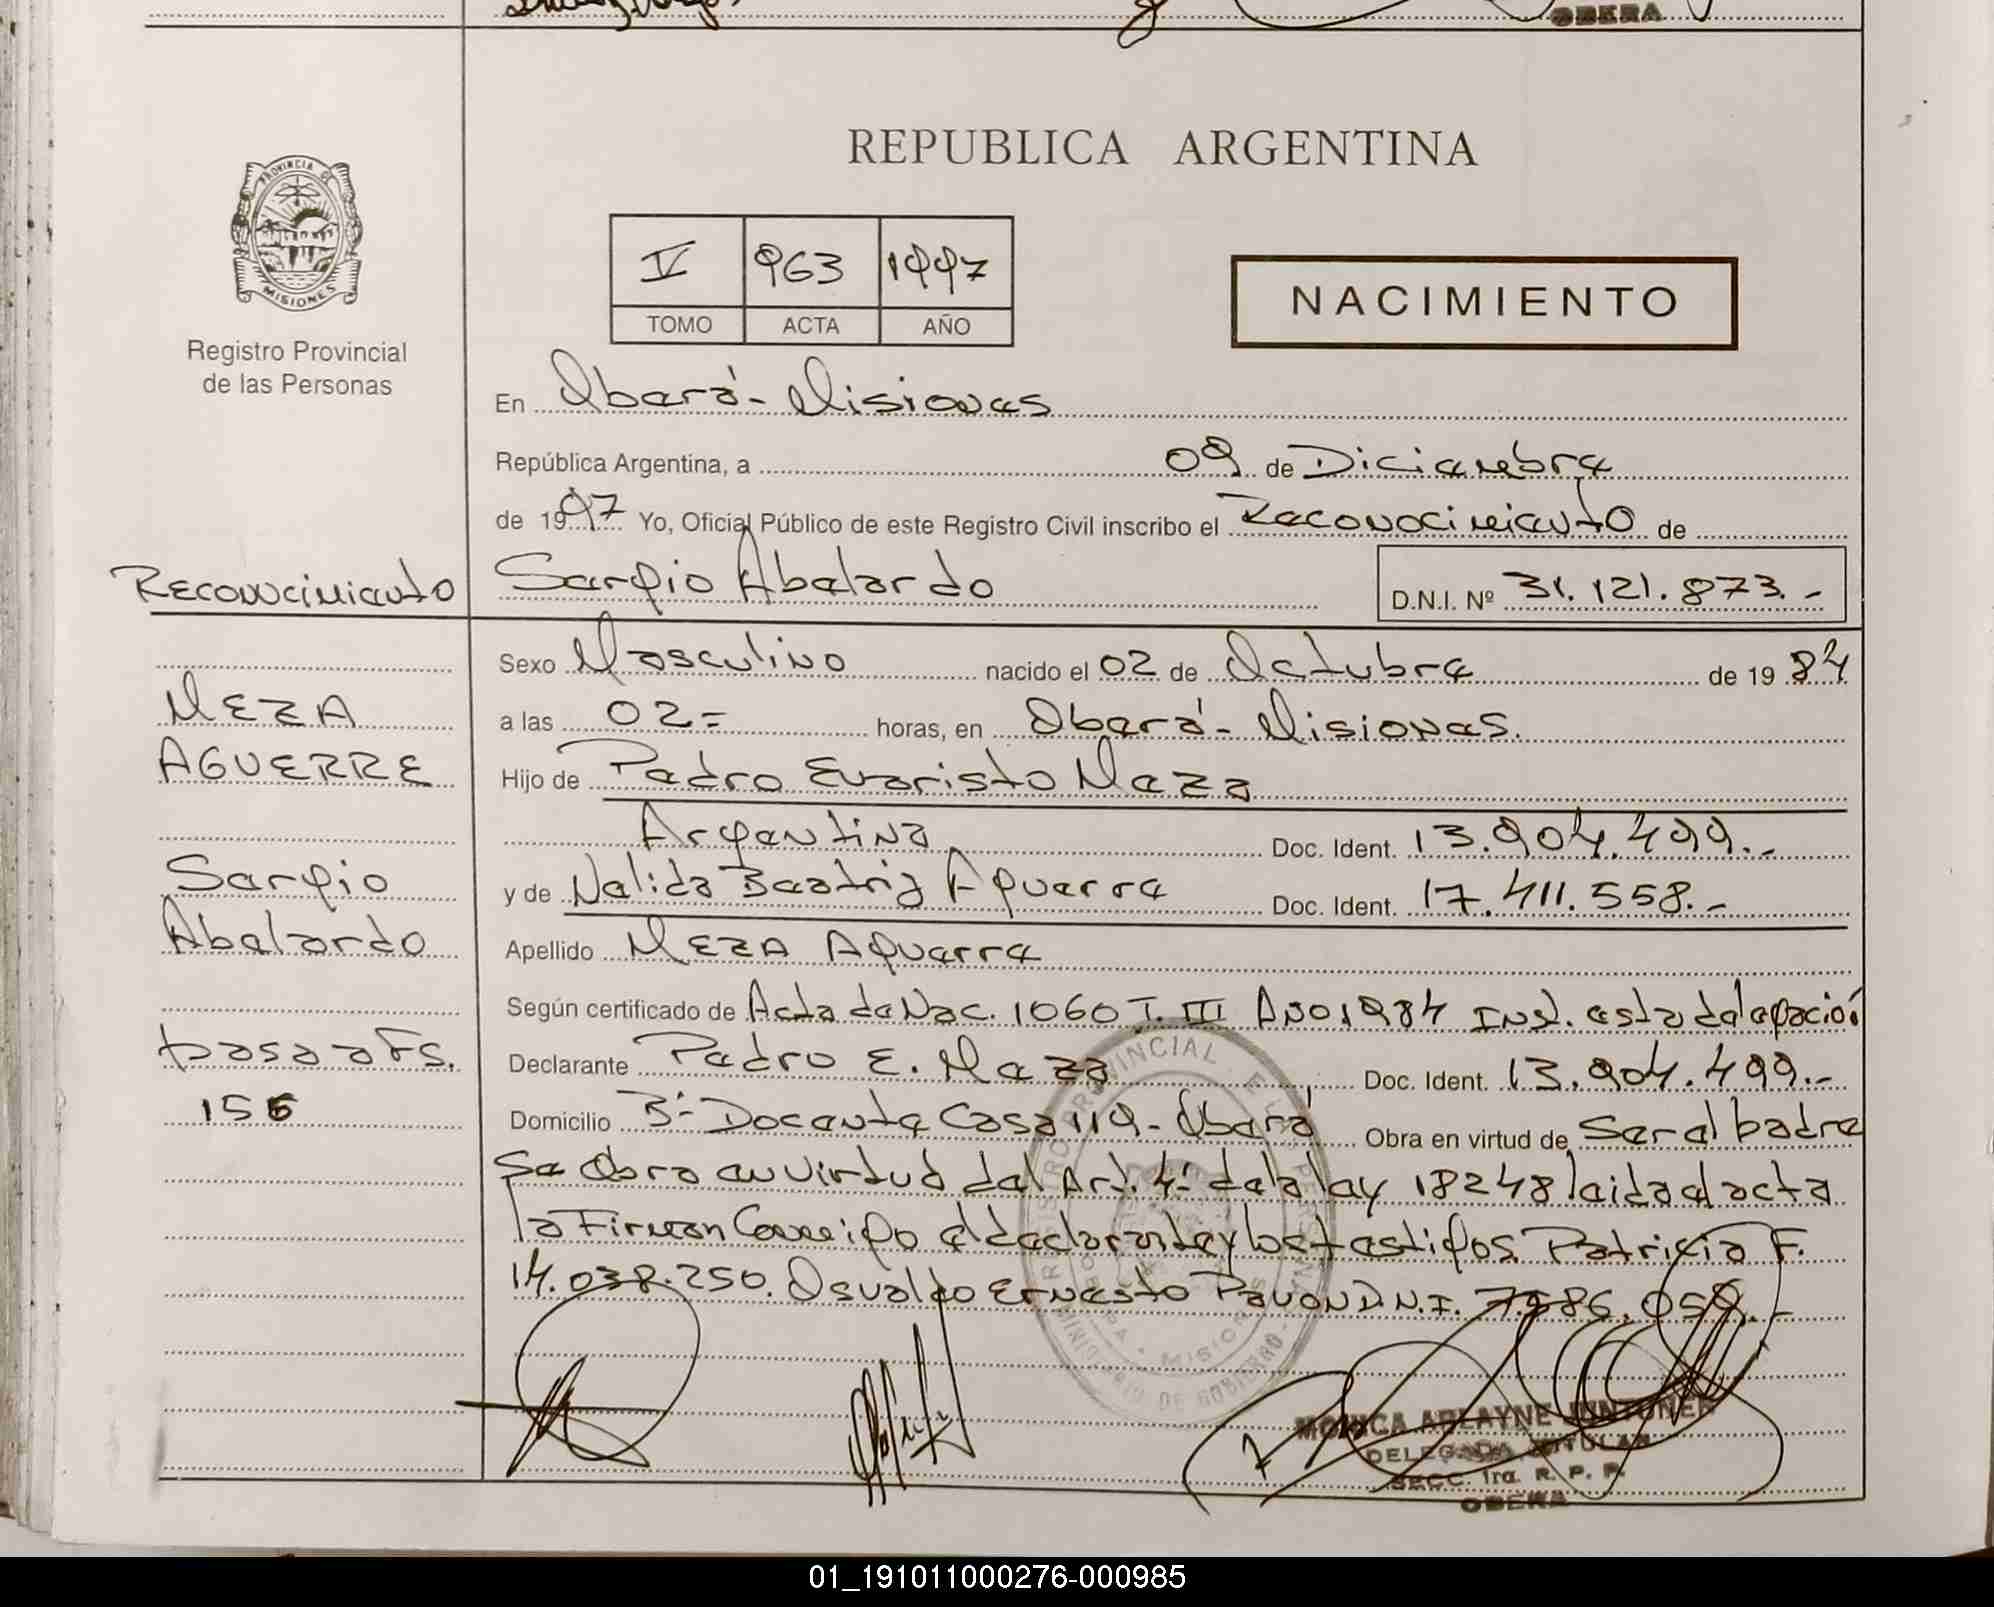 OBERA
REPUBLICA ARGENTINA
PROVINCIA DE
MISIONES
Registro Provincial
de las Personas
V 963 1997
TOMO ACTA AÑO
NACIMIENTO
En Oberá - Misiones
República Argentina, a 09 de Diciembre
de 1997 Yo, Oficial Público de este Registro Civil inscribo el Reconocimiento de
Reconocimiento
Sergio Abelardo D.N.I. Nº 31.121.873.-
Sexo Masculino nacido el 02 de Octubre de 1984
MEZA
a las 02= horas, en Oberá - Misiones.
AGUERRE
Hijo de Pedro Evaristo Meza
Argentina Doc. Ident. 13.904.499.-
Sergio
y de Nelida Beatriz Aguerre Doc. Ident. 17.411.558.-
Abelardo
Apellido MEZA Aguerre
Según certificado de Acta de Nac. 1060 T. III Año 1984 Ins. esta delegación
pasa a Fs.
Declarante Pedro E. Meza Doc. Ident. 13.904.499.-
156
Domicilio Bº Docente Casa 119 - Oberá Obra en virtud de Ser el padre
Se Obra en virtud del Art. 4º de la ley 18248 leida el acta
la Firman Conmigo el declarante y los testigos Patricia F.
14.038.250. Osvaldo Ernesto Pavon D.N.I.
MONICA ARLAYNE JUNTUNEN
DELEGADA TITULAR
SECC. 1ra. R. P. P.
OBERA
01_191011000276-000985